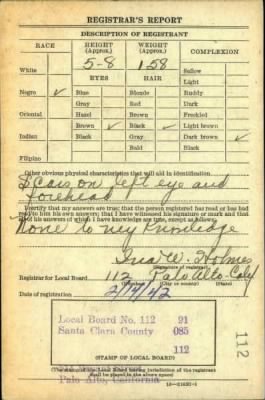 REGISTRAR'S REPORT
DESCRIPTION OF REGISTRANT
RACE HEIGHT (Approx.) WEIGHT (Approx.) COMPLEXION
5-8 158
White Sallow
EYES HAIR Light
Negro ✓ Blue Blonde Ruddy
Gray Red Dark
Oriental Hazel Brown Freckled
Brown ✓ Black ✓ Light brown
Indian Black Gray Dark brown ✓
Bald Black
Filipino
Other obvious physical characteristics that will aid in identification
Scars on left eye and
forehead
I certify that my answers are true; that the person registered has read or has had
read to him his own answers; that I have witnessed his signature or mark and that
all of his answers of which I have knowledge are true, except as follows:
None to my knowledge
Ina W. Holmes
(Signature of registrar)
Registrar for Local Board 112 Palo Alto - Calif
(Number) (City or county) (State)
Date of registration 2/14/42
Local Board No. 112 91
Santa Clara County 085
112
112
(STAMP OF LOCAL BOARD)
(The stamp of the Local Board having jurisdiction of the registrant
shall be placed in the above space)
Palo Alto, California